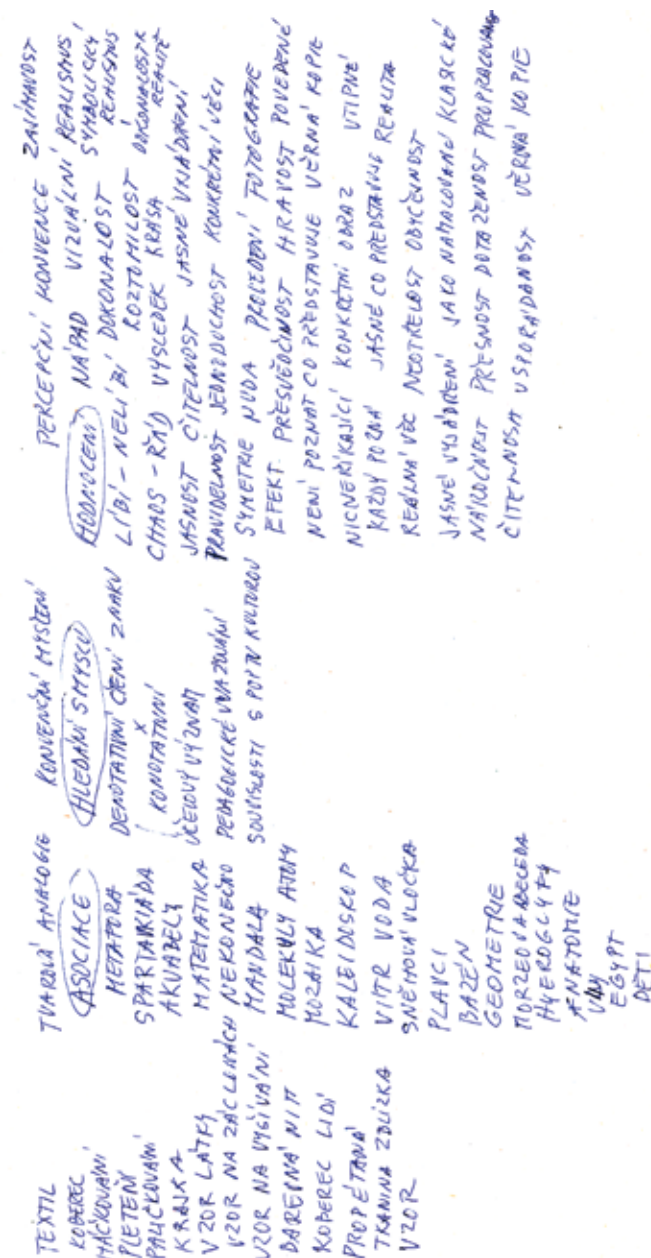 TEXTIL
KOBEREC
HÁČKOVÁNÍ
PLETENÍ
PALIČKOVÁNÍ
KRAJKA
VZOR LÁTKY
VZOR NA ZÁCLONÁCH
VZOR NA VYŠÍVÁNÍ
BAREVNÁ NIT
KOBEREC LIDÍ
PROPLÉTANÁ
TKANINA
VZOR
TVAROVÁ ANALOGIE
ASOCIACE
METAFORA
SPARTAKIÁDA
AKVABELY
MATEMATIKA
NEKONEČNO
MANDALA
MOLEKULY ATOMY
MOZAIKA
KALEIDOSKOP
VITR VODA
SNĚHOVÁ VLOČKA
PLAVCI
BAZÉN
GEOMETRIE
MORZEOVA ABECEDA
HYEROGLYFY
ANATOMIE
EGYPT
DĚTI
KONVENČNÍ MYŠLENÍ
HLEDÁNÍ SMYSLU
DENOTATIVNÍ ČTENÍ ZNAKU
X
KONOTATIVNÍ
ÚČELOVÝ VÝZNAM
PEDAGOGICKÉ UVAŽOVÁNÍ
SOUVISLOSTI S POPTV KULTUROU
PERCEPČNÍ KONVENCE ZAJÍMAVOST
HODNOCENÍ NÁPAD VIZUÁLNÍ REALISMUS SYMBOLICKÝ REALISMUS
LÍBÍ - NELÍBÍ DOKONALOST
ROZTOMILOST DOKONALOST REALITĚ
CHAOS - ŘÁD VÝSLEDEK KRÁSA
JASNOST ČITELNOST JASNÉ VYJÁDŘENÍ
PRAVIDELNOST JEDNODUCHOST KONKRÉTNÍ VĚCI
SYMETRIE NUDA PROVEDENÍ FOTOGRAFIE
EFEKT PŘESVĚDČIVOST HRAVOST POVEDENÉ
NENÍ POZNAT CO PŘEDSTAVUJE VĚRNÁ KOPIE
NICNEŘÍKAJÍCÍ KONKRÉTNÍ OBRAZ VTIPNÉ
KAŽDÝ POZNÁ JASNÉ CO PŘEDSTAVUJE REALITA
REÁLNÁ VĚC NEOTŘELOST OBYČEJNOST
JASNÉ VYJÁDŘENÍ JAKO NAMALOVANÉ KLASICKÉ
NÁROČNOST PŘESNOST DOTAŽENOST PROPRACOVANOST
ČITELNOST USPOŘÁDANOST VĚRNÁ KOPIE